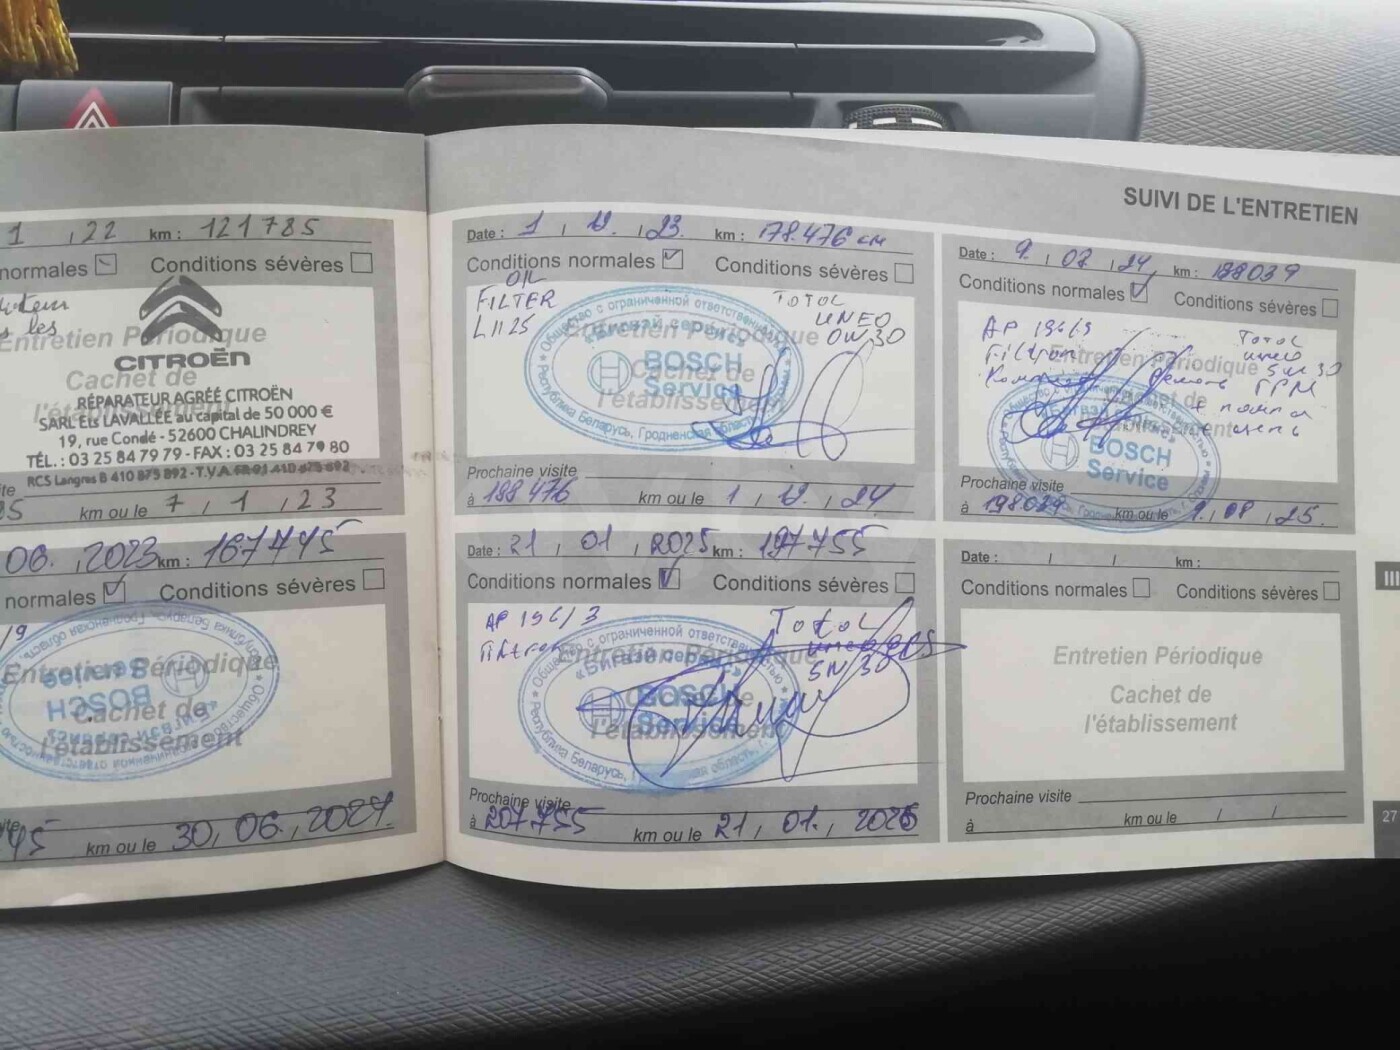 SUIVI DE L'ENTRETIEN
1 , 22 km : 121785
normales Conditions sévères
Entretien Périodique
Cachet de
l'établissement
CITROËN
RÉPARATEUR AGRÉÉ CITROËN
SARL Ets LAVALLÉE au capital de 50 000 €
19, rue Condé - 52600 CHALINDREY
TÉL. : 03 25 84 79 79 - FAX : 03 25 84 79 80
RCS Langres B 410 875 892 - T.V.A.
km ou le 7 , 1 , 23
06. , 2023 km : 167445
normales Conditions sévères
Entretien Périodique
Cachet de
l'établissement
BOSCH
Service
km ou le 30, 06., 2024
Date : 1 , 12 , 23 km : 178.476 км
Conditions normales Conditions sévères
OIL
FILTER
L1125
TOTAL
INEO
0W30
Entretien Périodique
Cachet de
l'établissement
Общество с ограниченной ответственностью
BOSCH
Service
Республика Беларусь, Гродненская область
Prochaine visite
à 188476 km ou le 1 , 12 , 24
Date : 9 , 07 , 24 km : 188039
Conditions normales Conditions sévères
AP 196/9
Total
ineo
5w30
ГРМ
Entretien Périodique
Cachet de
l'établissement
BOSCH
Service
Prochaine visite
à 198039 km ou le 9. , 08 , 25.
Date : 21 , 01 , 2025 km : 197755
Conditions normales Conditions sévères
AP 196/3
Total
5W30
Entretien Périodique
Cachet de
l'établissement
Общество с ограниченной ответственностью
«Бигвэй сервис»
BOSCH
Service
Республика Беларусь,
Prochaine visite
à 207755 km ou le 21 , 01. , 2026
Date : / / km :
Conditions normales Conditions sévères
Entretien Périodique
Cachet de
l'établissement
Prochaine visite
à km ou le / /
III
27